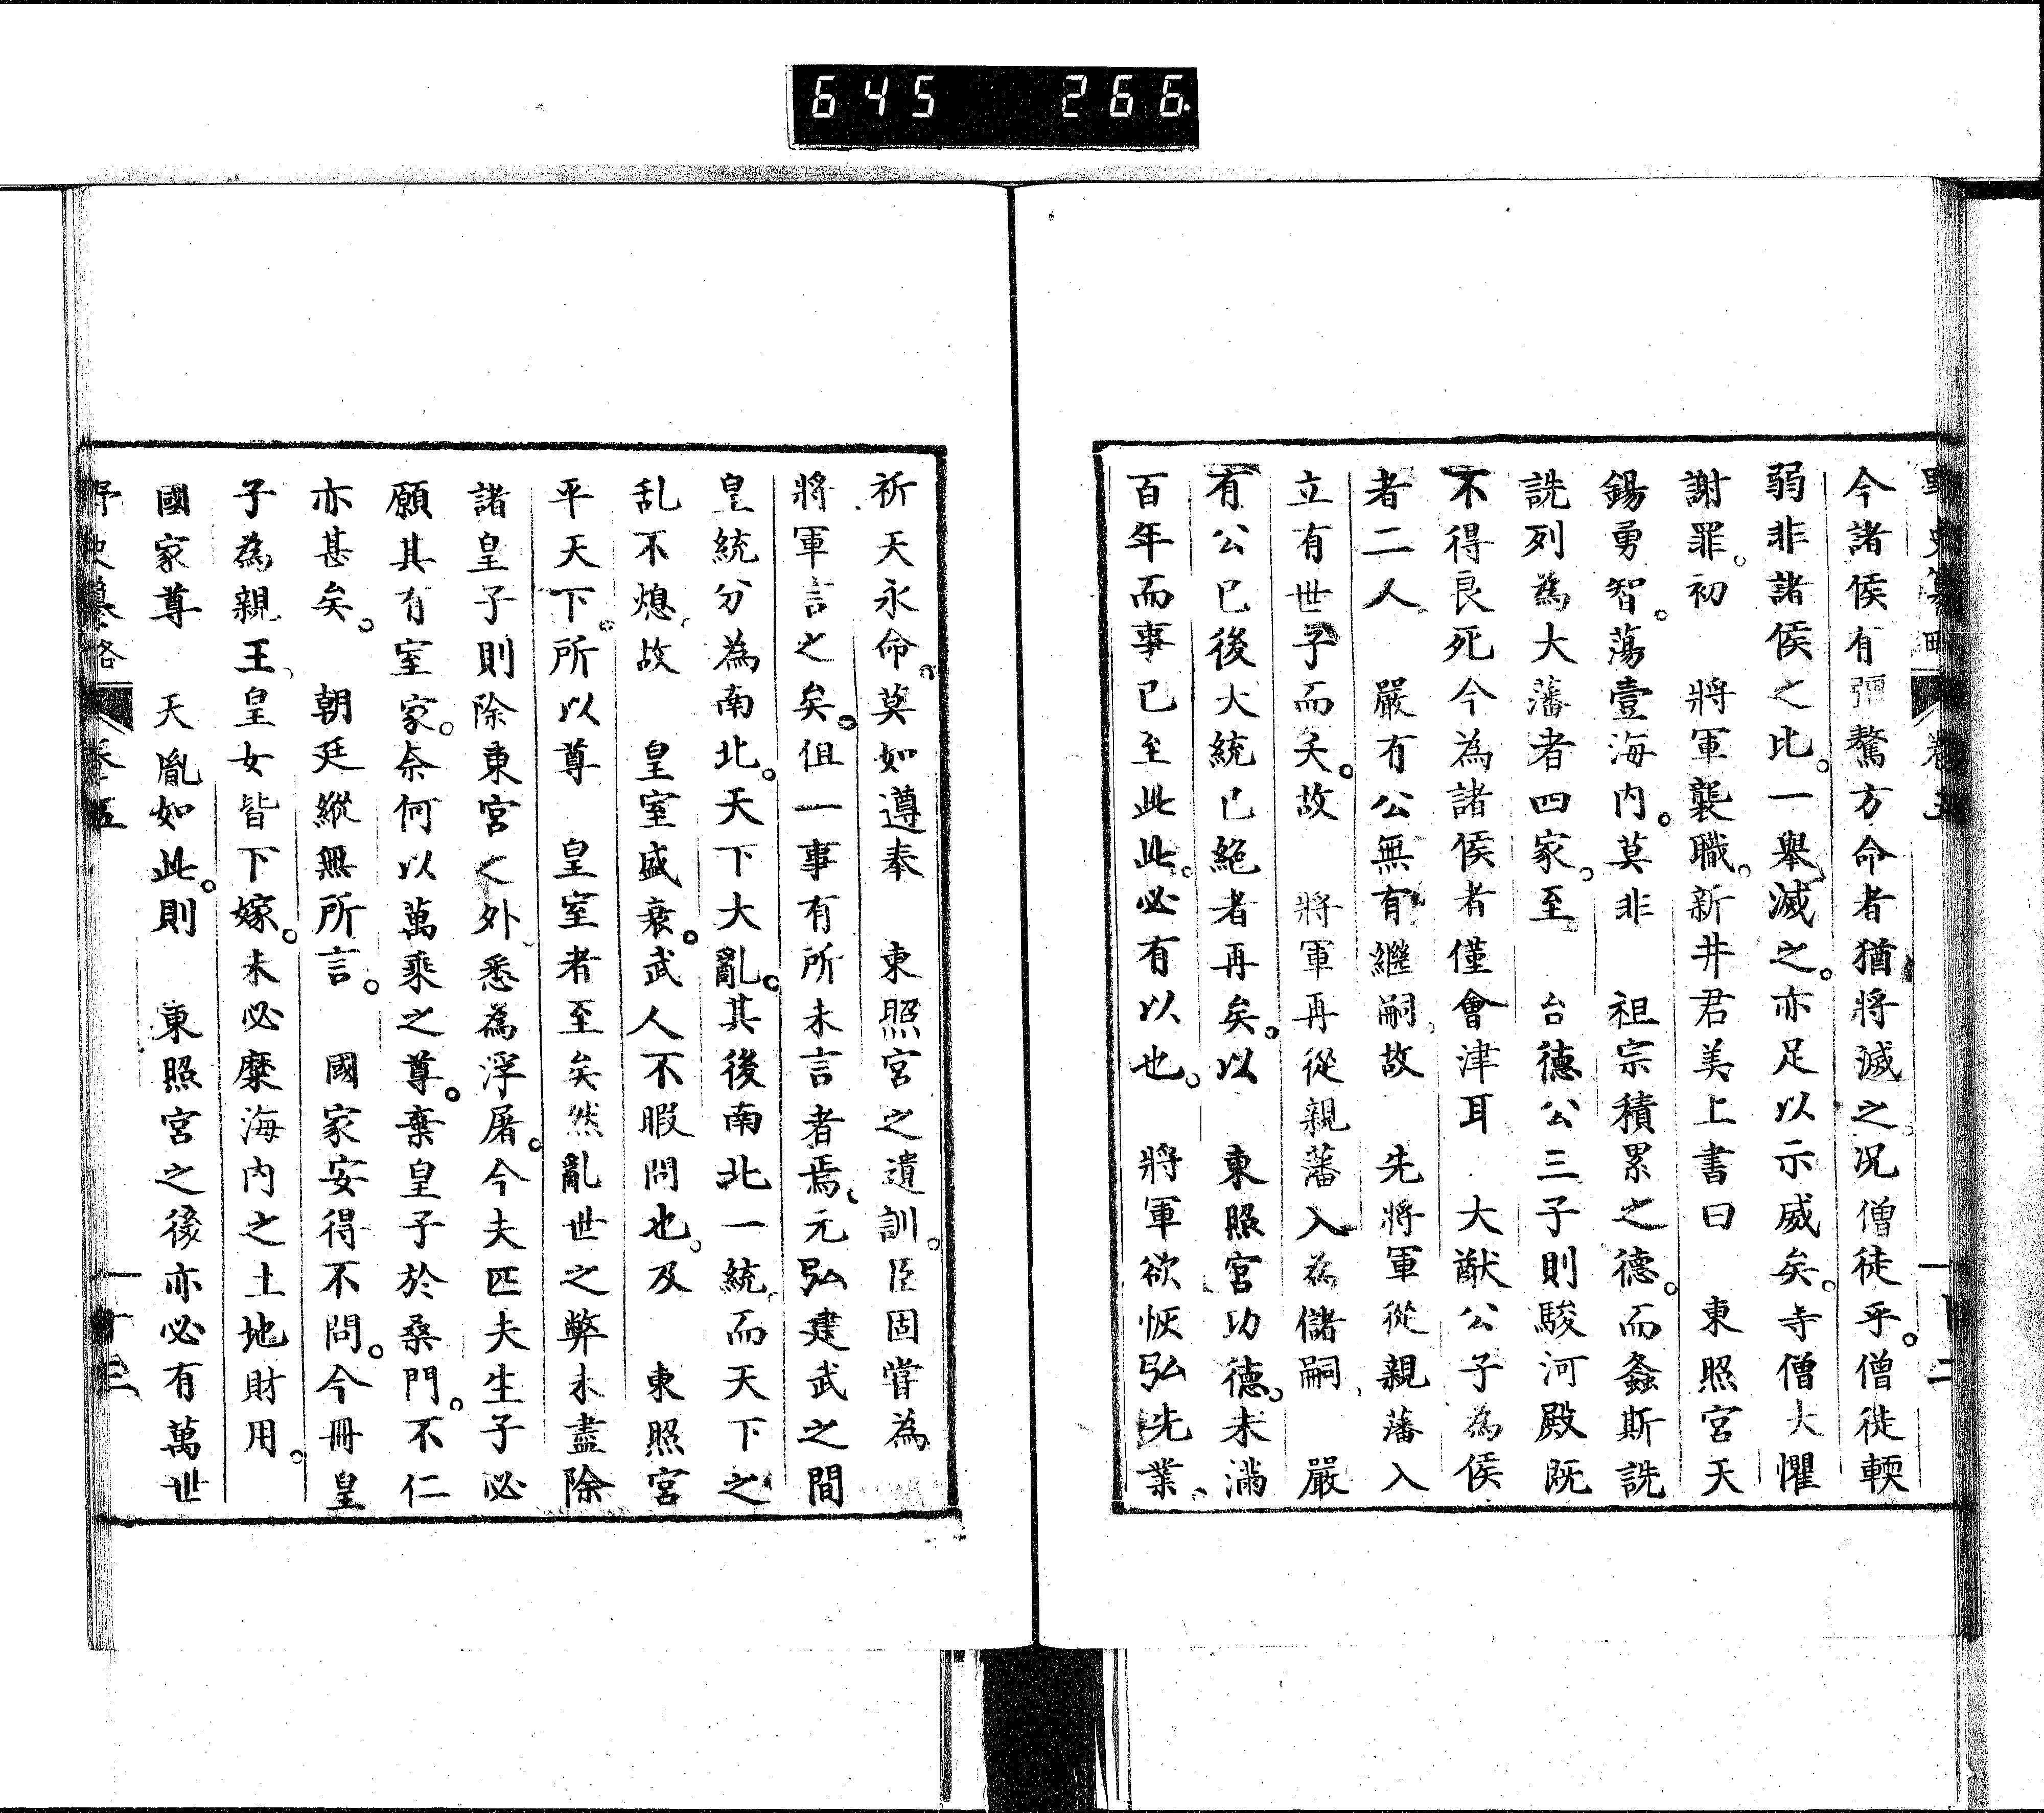 645 266
野史纂略 卷五 一十二
今諸侯有彊驁方命者猶將滅之。况僧徒乎。僧徒輭
弱非諸侯之比。一舉滅之。亦足以示威矣。寺僧大懼
謝罪。初 將軍襲職。新井君美上書曰 東照宮天
錫勇智。蕩壹海内。莫非 祖宗積累之德。而螽斯詵
詵列為大藩者四家。至 台德公三子則駿河殿既
不得良死今為諸侯者僅會津耳 大猷公子為侯
者二人 嚴有公無有繼嗣故 先將軍從親藩入
立有世子而夭。故 將軍再從親藩入為儲嗣 嚴
有公已後大統已絶者再矣。以 東照宮功德。未滿
百年而事已至此此。必有以也。 將軍欲恢弘先業、
祈天永命。莫如遵奉 東照宮之遺訓。臣固嘗為
將軍言之矣。但一事有所未言者焉、元弘建武之間
皇統分為南北。天下大亂。其後南北一統而天下之
乱不熄、故 皇室盛衰。武人不暇問也。及 東照宮
平天下。所以尊 皇室者至矣然亂世之弊未盡除
諸皇子則除東宮之外、悉為浮屠。今夫匹夫生子必
願其有室家。奈何以萬乘之尊。棄皇子於桑門。不仁
亦甚矣。 朝廷縱無所言。 國家安得不問。今冊皇
子為親王、皇女皆下嫁。未必糜海内之土地財用。
國家尊 天胤如此。則 東照宮之後亦必有萬世
野史纂略 卷五 一十三